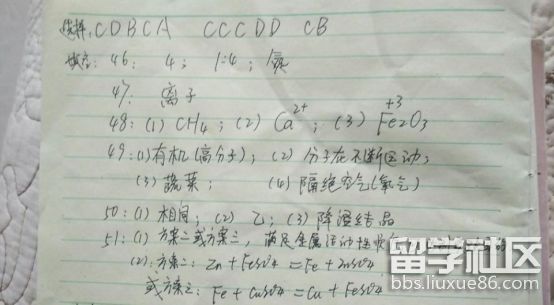 选择: CDBCA CCCDD CB
填空: 46: 4; 1:4; 氮
47: 离子
48: (1) CH4; (2) Ca2+; (3) +3 Fe2O3
49: (1) 有机(高分子); (2) 分子在不断运动;
(3) 蔬菜; (4) 隔绝空气(氧气)
50: (1) 相同; (2) 乙; (3) 降温结晶
51: (1) 方案一或方案二, 满足金属活动性
(2): 方案一: Zn + FeSO4 = Fe + ZnSO4
或方案二: Fe + CuSO4 = Cu + FeSO4
留学社区
bbs.liuxue86.com